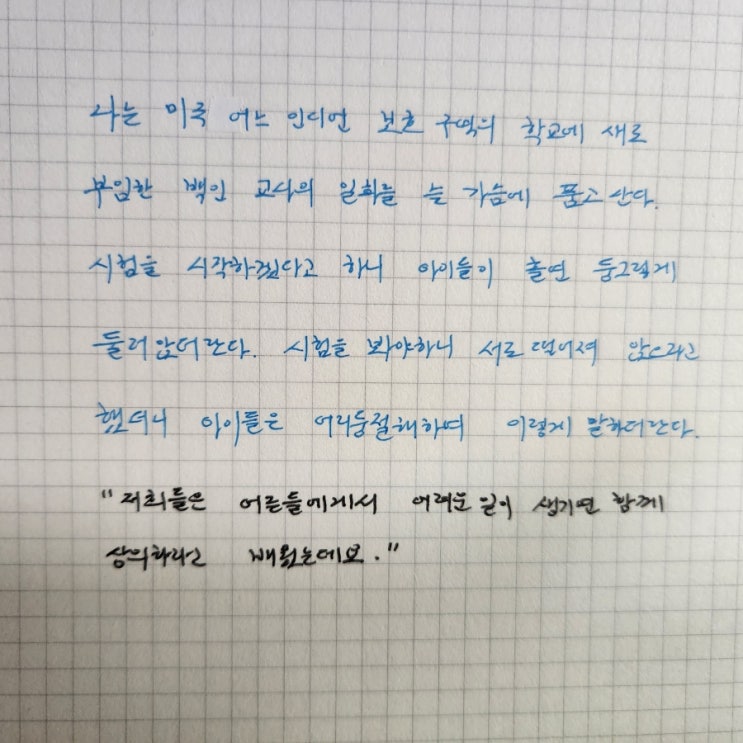 나는 미국 어느 인디언 보호 구역의 학교에 새로
부임한 백인 교사의 일화를 늘 가슴에 품고 산다.
시험을 시작하겠다고 하니 아이들이 홀연 둥그렇게
둘러 앉더란다. 시험을 봐야하니 서로 떨어져 앉으라고
했더니 아이들은 어리둥절해하며 이렇게 말하더란다.
"저희들은 어른들에게서 어려운 일이 생기면 함께
상의하라고 배웠는데요."